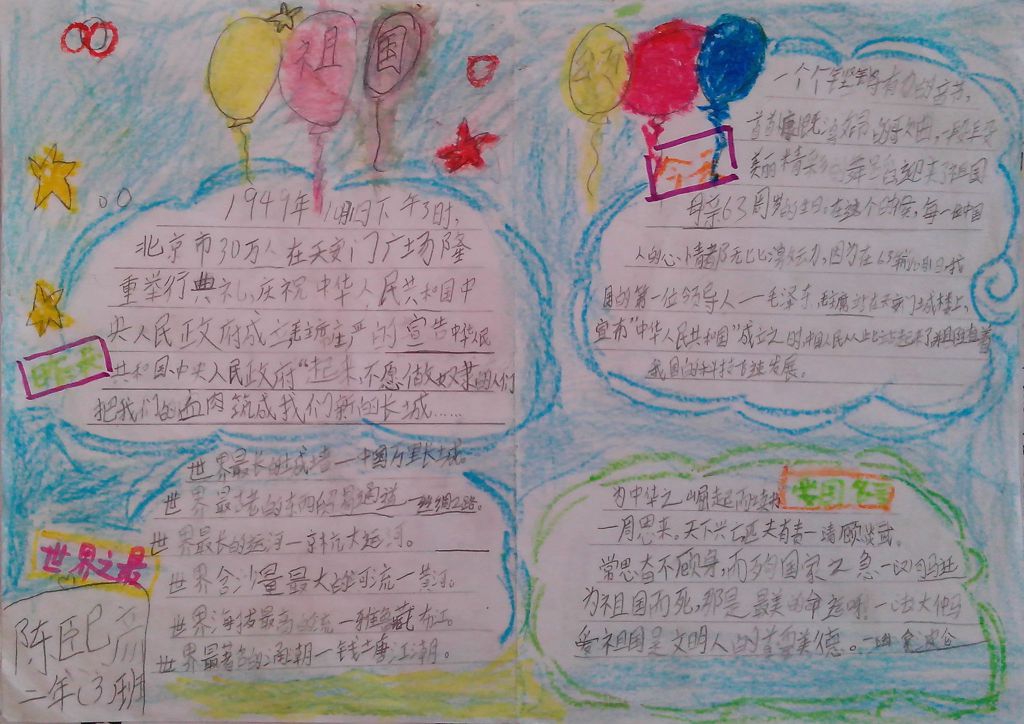 祖国
1949年10月1日下午3时,
北京市30万人在天安门广场隆
重举行典礼,庆祝中华人民共和国中
央人民政府成立毛主席庄严的宣告中华人民
共和国中央人民政府“起来,不愿做奴隶的人们
把我们的血肉筑成我们新的长城……
昨天
世界最长的城墙一中国万里长城
世界最古老的东西的贸易通道一丝绸之路。
世界最长的运河一京杭大运河。
世界含沙量最大的河流一黄河。
世界海拔最高的河流一雅鲁藏布江。
世界最著名的涌潮一钱塘江潮。
世界之最
二年(3)班
今天
一个个铿锵有力的音节,
首首慷慨激昂的
美丽精彩的舞蹈迎来了祖国
母亲63周岁的生日。在这个时候,每一位中国
人的心情都无比激动,因为在63前的今日我
国的第一位领导人一毛泽东主席站在天安门城楼上,
宣布“中华人民共和国”成立之时,中国人民从此站起来了
我国的科技飞速发展。
爱国名言
为中华之崛起而读书
一周恩来。天下兴亡匹夫有责一清顾炎武。
常思奋不顾身,而殉国家之急一汉司马迁
为祖国而死,那是最美的命运啊!一法大仲马
爱祖国是文明人的首要美德。一拿破仑